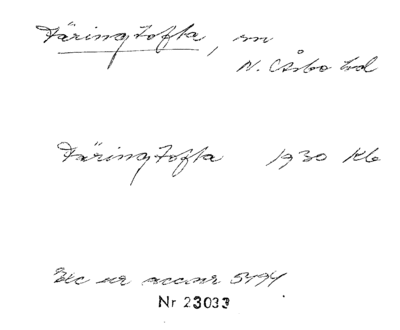 Färingtofta, sn
N. Åsbo hd
Färingtofta 1930 Kb
Exc ur accnr 5194.
Nr 23033